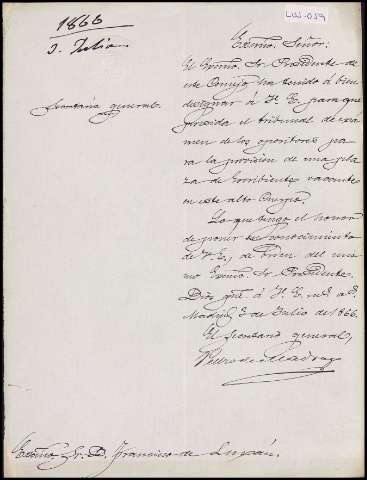 LUJ-059
1866
3. Julio
Secretaría general.
Exmo. Señor:
El Exmo. Sr. Presidente de
este Consejo, ha tenido á bien
designar á V. E. para que
presida el tribunal de exá-
men de los opositores pa-
ra la provision de una pla-
za de Escribientes vacante
en este alto Cuerpo.
Lo que tengo el honor
de poner en conocimiento
de V. E., de órden del mis-
mo Exmo. Sr. Presidente.
Dios gue. á V. E. ms. a.s.
Madrid, 3 de Julio de 1866.
El Secretario general,
Pedro de Madrazo
Exmo. Sr. D. Francisco de Luján.